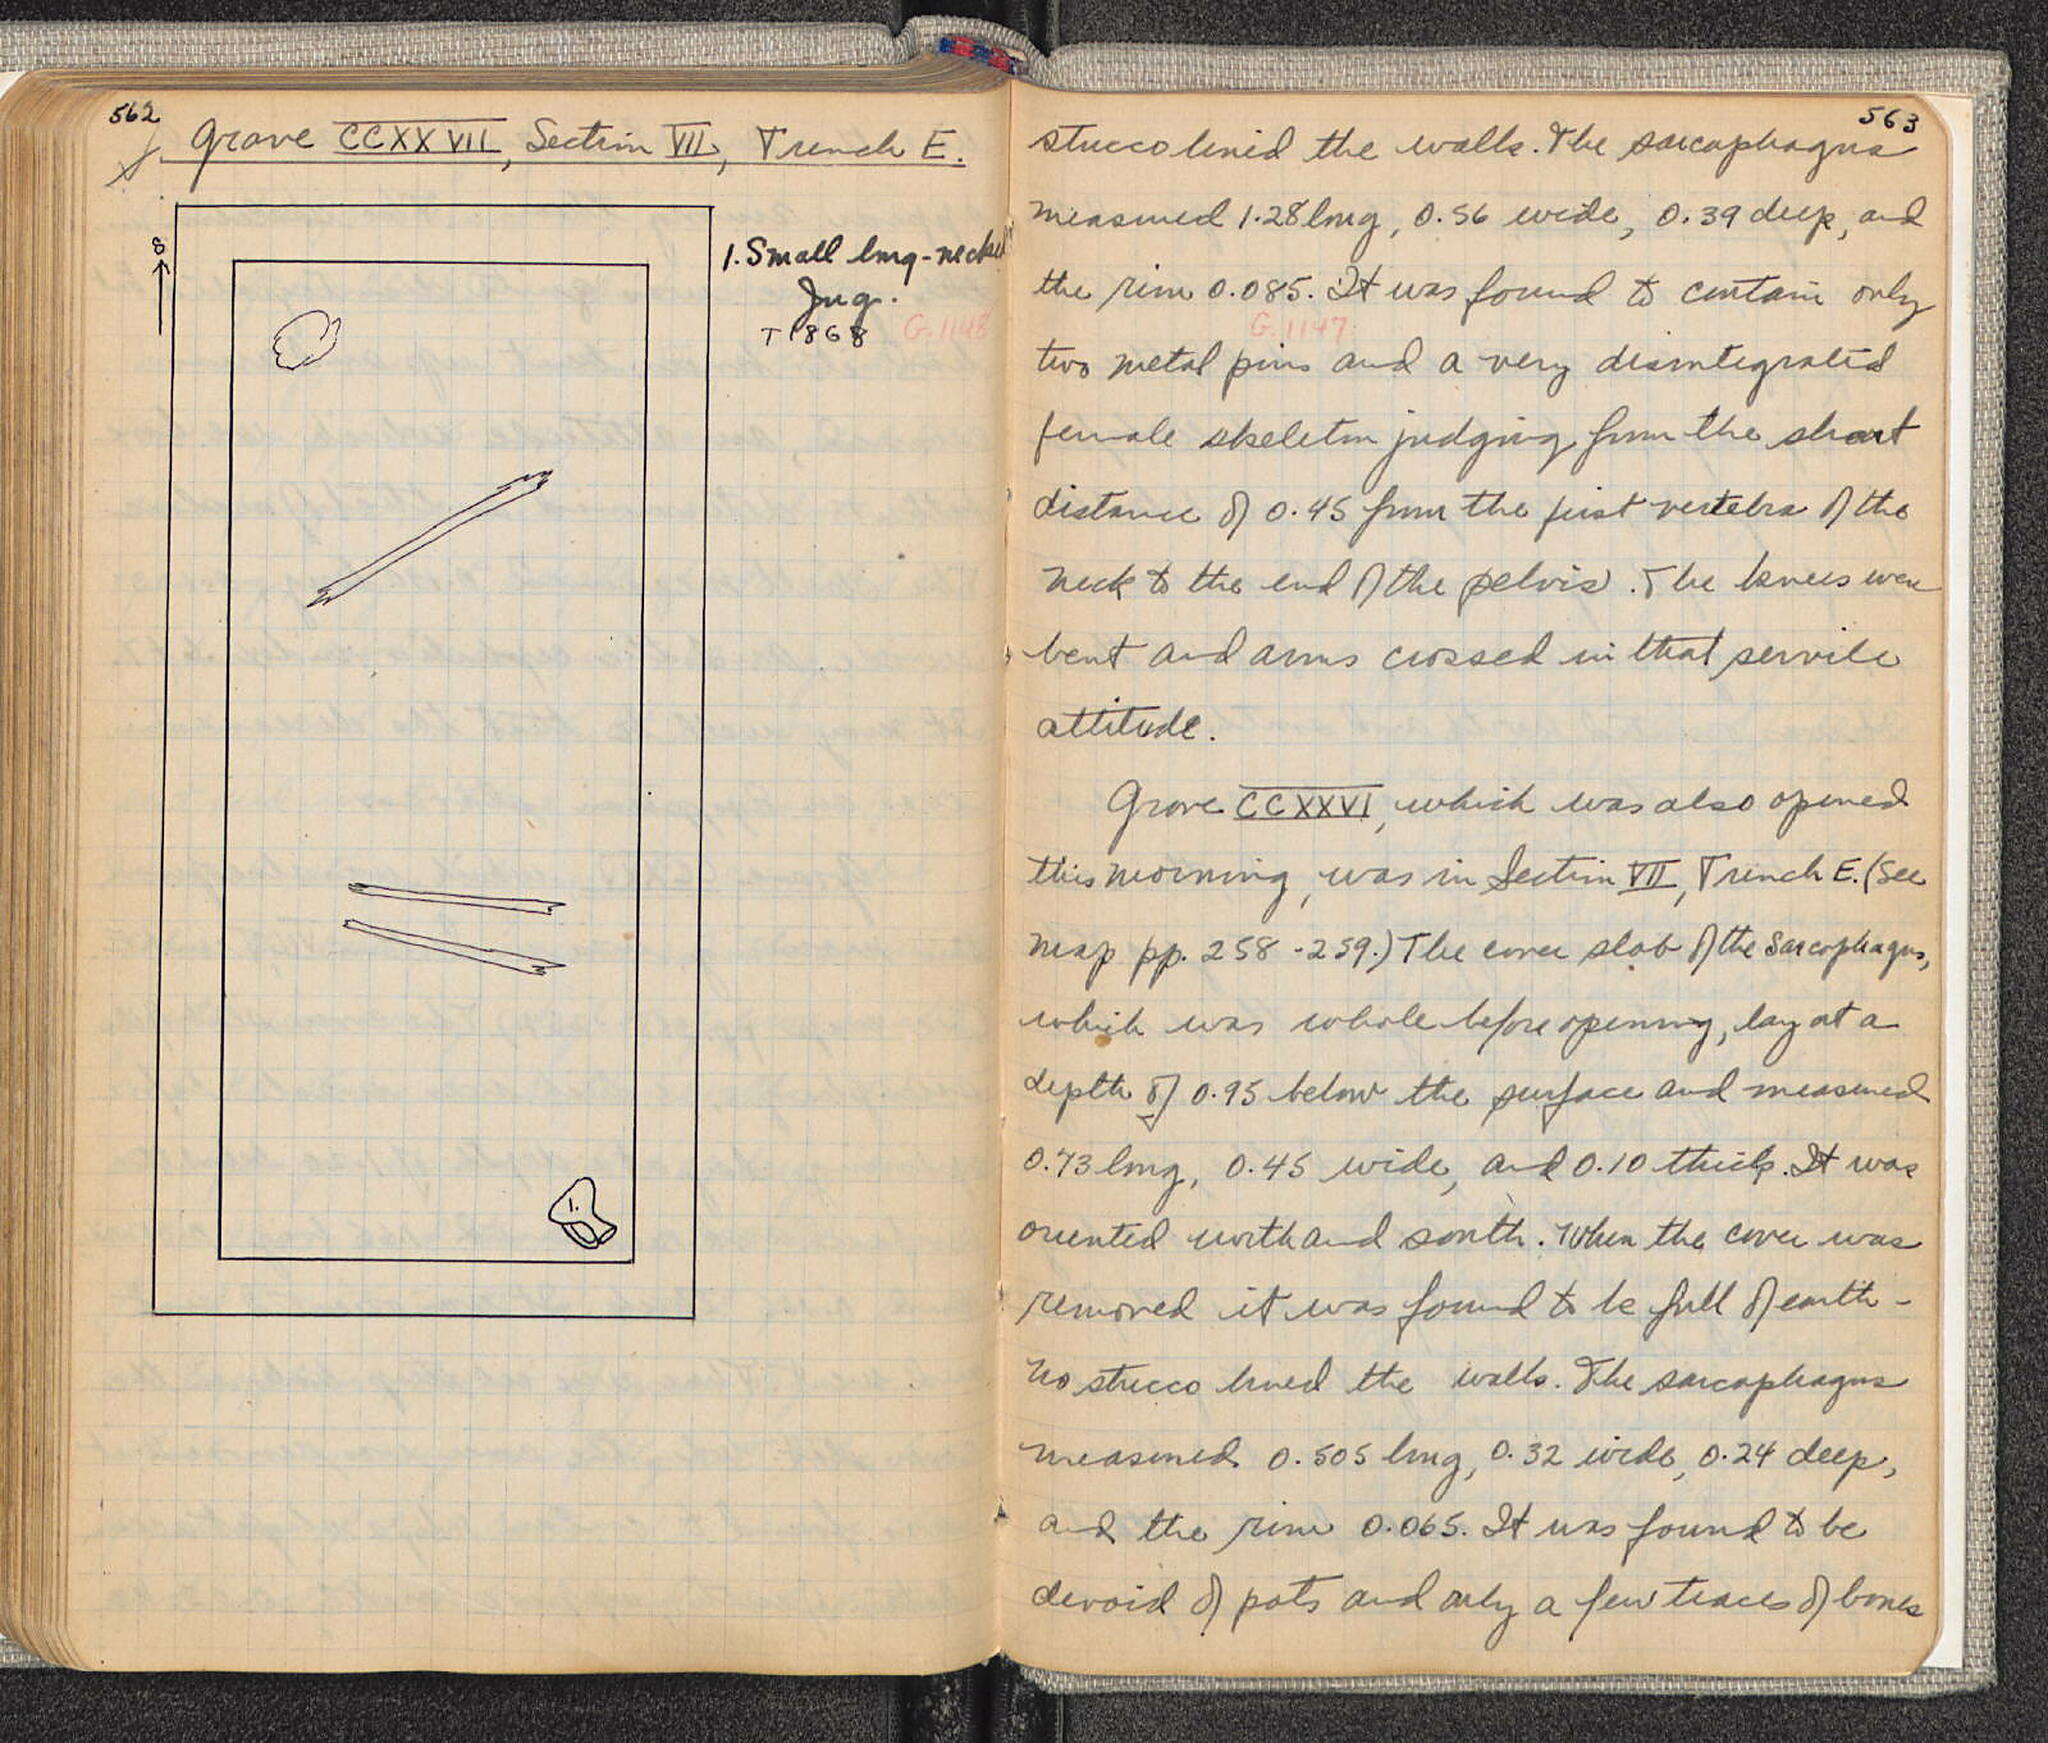 562
Grave CCXXVII, Section VII, Trench E.
8
1. Small long-necked
Jug.
T1868 G.1148
1.
563
stucco lined the walls. The sarcophagus
measured 1.28 long, 0.56 wide, 0.39 deep, and
the rim 0.085. It was found to contain only
G.1147
two metal pins and a very disintegrated
female skeleton judging from the short
distance of 0.45 from the first vertebra of the
neck to the end of the pelvis. The knees were
bent and arms crossed in that servile
attitude.
Grave CCXXVI, which was also opened
this morning, was in Section VII, Trench E. (See
map pp. 258-259.) The cover slab of the sarcophagus,
which was whole before opening, lay at a
depth of 0.95 below the surface and measured
0.73 long, 0.45 wide, and 0.10 thick. It was
oriented north and south. When the cover was
removed it was found to be full of earth -
No stucco lined the walls. The sarcophagus
measured 0.505 long, 0.32 wide, 0.24 deep,
and the rim 0.065. It was found to be
devoid of pots and only a few traces of bones